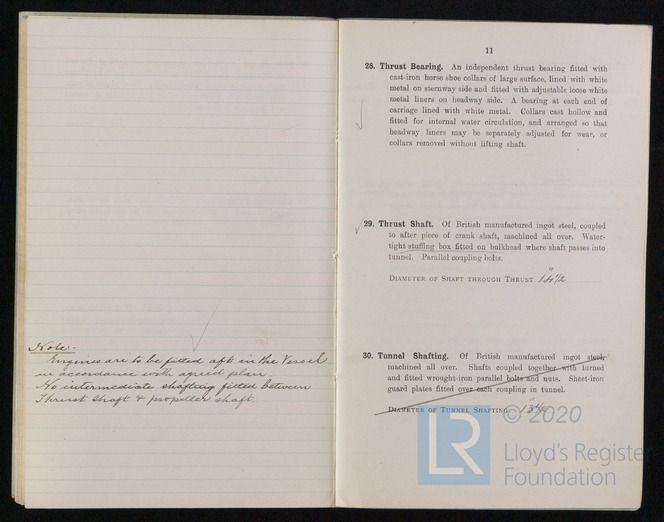 Note:-
Engines are to be fitted aft in the Vessel
in accordance with agreed plan.
No intermediate shafting fitted between
Thrust shaft & propeller shaft.
11
28. Thrust Bearing. An independent thrust bearing fitted with
cast-iron horse shoe collars of large surface, lined with white
metal on sternway side and fitted with adjustable loose white
metal liners on headway side. A bearing at each end of
carriage lined with white metal. Collars cast hollow and
fitted for internal water circulation, and arranged so that
headway liners may be separately adjusted for wear, or
collars removed without lifting shaft.
29. Thrust Shaft. Of British manufactured ingot steel, coupled
to after piece of crank shaft, machined all over. Water-
tight stuffing box fitted on bulkhead where shaft passes into
tunnel. Parallel coupling bolts.
Diameter of Shaft through Thrust
30. Tunnel Shafting. Of British manufactured ingot steel,
machined all over. Shafts coupled together with turned
and fitted wrought-iron parallel bolts and nuts. Sheet-iron
guard plates fitted over each coupling in tunnel.
Diameter of Tunnel Shafting
© 2020
LR
Lloyd's Register
Foundation